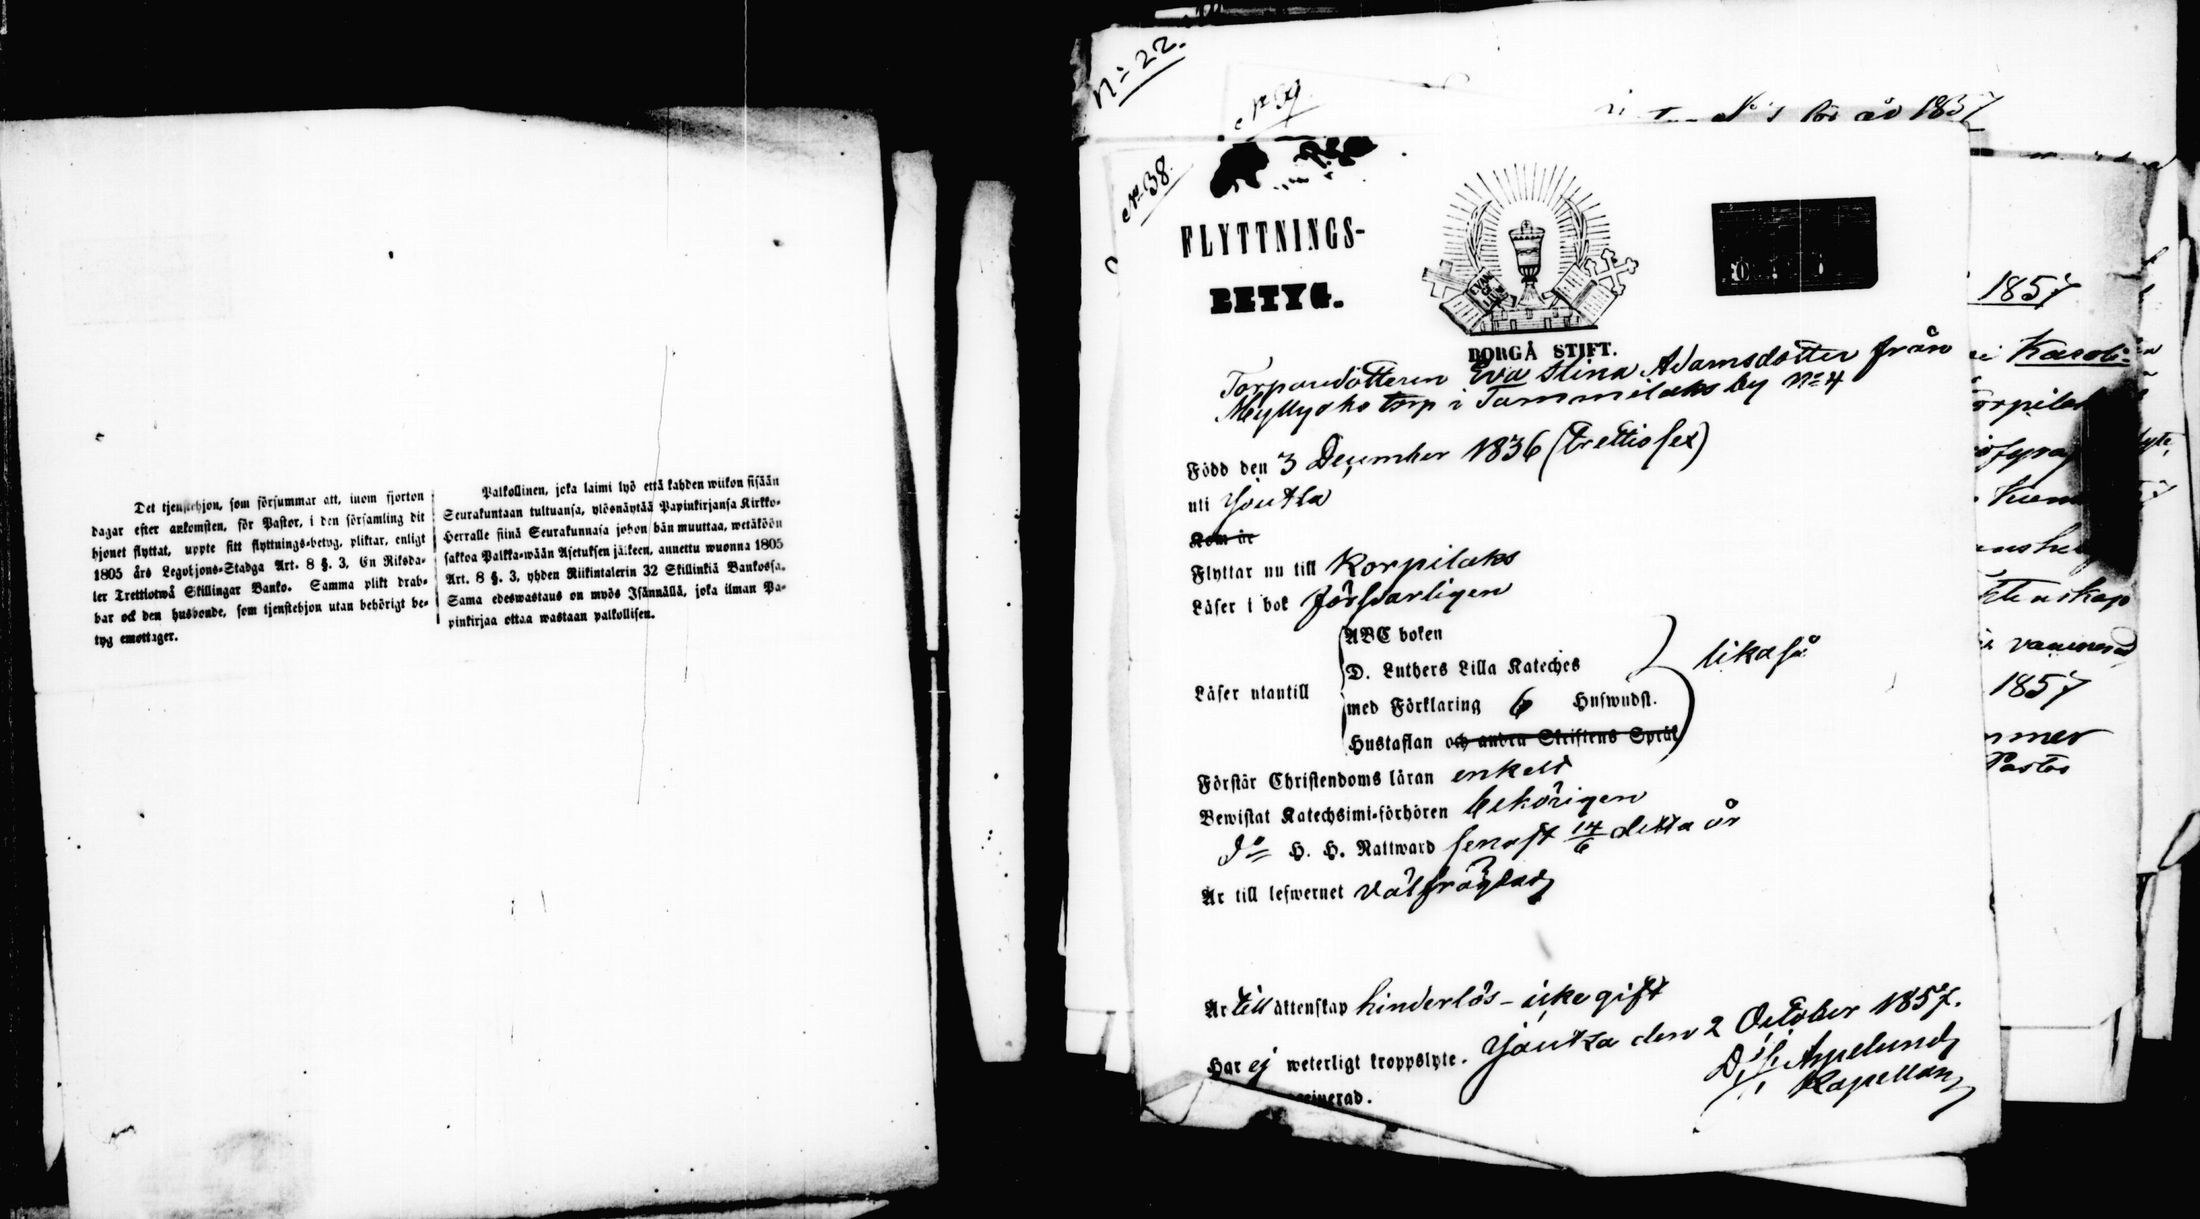 Det tjenstehjon, som försummar att, inom fjorton
dagar efter ankomsten, för Pastor, i den församling dit
hjonet flyttat, uppte sitt flyttnings-betyg, pliktar, enligt
1805 års Legohjons-Stadga Art. 8 §. 3, En Riksda-
ler Trettiotwå Skillingar Banko. Samma plikt drab-
bar ock den husbonde, som tjenstehjon utan behörigt be-
tyg emottager.
Palkollinen, joka laimi lyö että kahden wiikon sisään
Seurakuntaan tultuansa, ylösnäytää Papinkirjansa Kirkko-
Herralle siinä Seurakunnasa johon hän muuttaa, wetäköön
sakkoa Palkka-wään Asetuksen jälkeen, annettu wuonna 1805
Art. 8 §. 3, yhden Riikintalerin 32 Skillinkiä Bankossa.
Sama edeswastaus on myös Isännällä, joka ilman Pa-
pinkirjaa ottaa wastaan palkollisen.
No 22.
No 1 för år 1857
No 38.
FLYTTNINGS-
BETYG.
BORGÅ STIFT.
Torparedottren Eva Stina Adamsdotter från
Myllyoko torp i Tammilaks by No 4
Född den 3 December 1836 (trettiosex)
uti Joutsa
Kom år
Flyttar nu till Korpilaks
Läser i bok försvarligen
Läser utantill
ABC boken
D. Luthers Lilla Kateches
med Förklaring 6 Hufwudst.
Hustaflan och andra Skriftens Språk
likaså
Förstår Christendoms läran enkelt
Bewistat Katechsimi-förhören behörigen
Do H. H. Nattward senast 14/6 detta år
Är till lefwernet välfrägdad
Är till äktenskap hinderlös - icke gift
Har ej weterligt kroppslyte.
Joutsa den 2 October 1857.
Appelund
Kapellan
1857
Karoli-
1857
Pastor